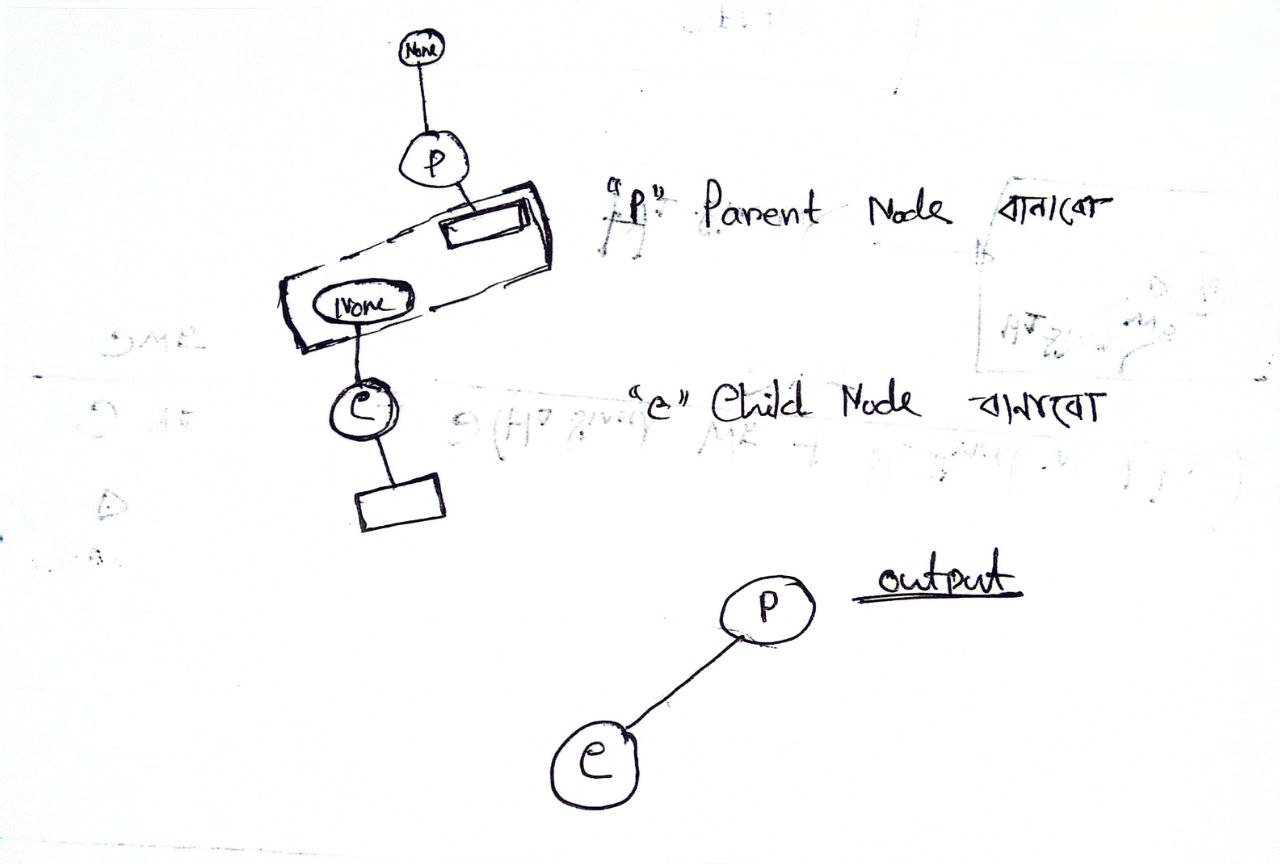 None
P
"P" Parent Node বানাবো
None
C
"C" Child Node বানাবো
output
P
C